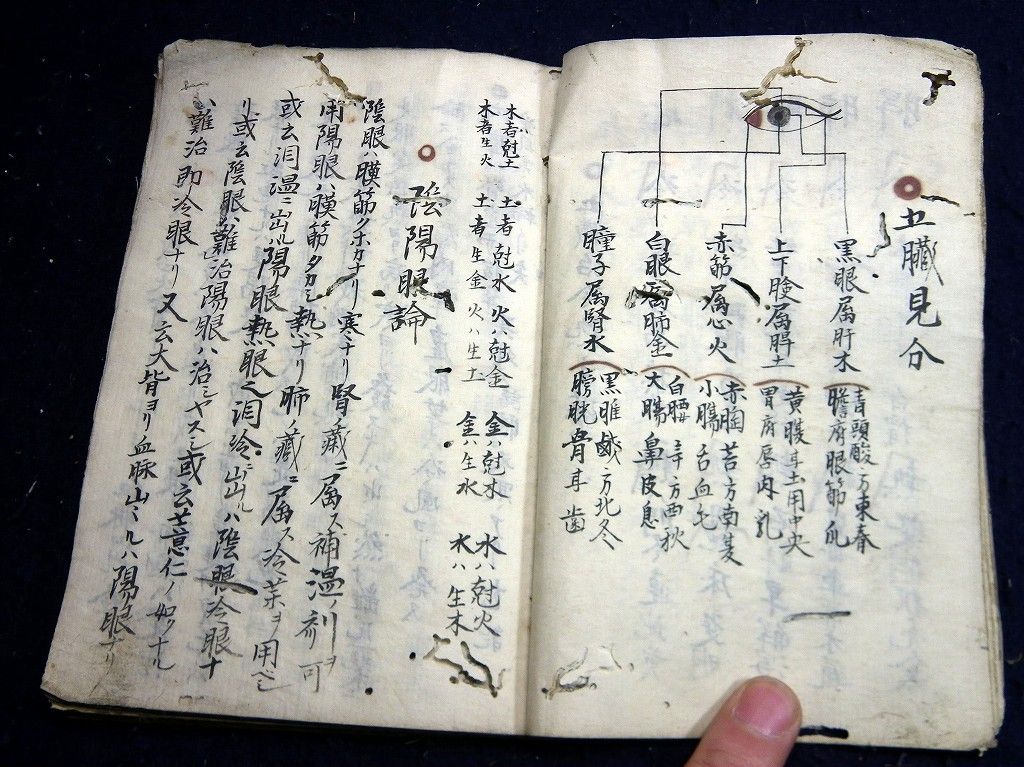 五臓見分
黒眼属肝木
青頭酸方東春
膽府眼筋爪
上下瞼属脾土
土用中央
胃府唇肉乳
赤筋属心火
赤胸苦方南夏
小腸舌血毛
白眼属肺金
白腰辛方西秋
大腸鼻皮息
瞳子属腎水
黒 鹹方北冬
膀胱骨耳歯
木者尅土 土者尅水 火ハ尅金 金ハ尅木 水ハ尅火
木者生火 土者生金 火ハ生土 金ハ生水 水ハ生木
陰陽眼論
陰眼ハ膜筋クホカナリ寒ナリ腎ノ藏ニ属ス補温ノ剤ヲ可
用陽眼ハ膜筋タカシ熱ナリ肺ノ藏ニ属ス冷薬ヲ用ベシ
或云泪温ニ出ルハ陽眼熱眼之泪冷ニ出ルハ陰眼冷眼ナ
リ或云陰眼ハ難治陽眼ハ治シヤスシ或云 仁ノ如クナル
ハ難治即冷眼ナリ又云大眥ヨリ血脉出ルハ陽眼ナリ